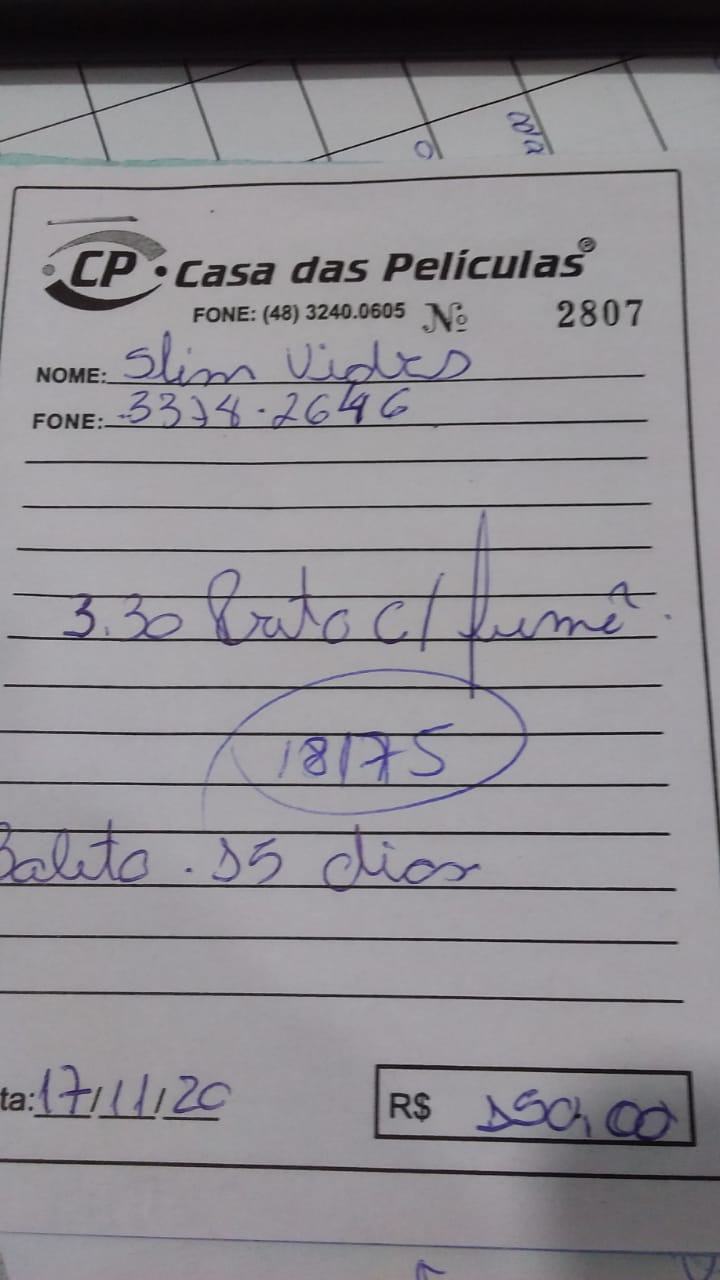 CP • Casa das Películas®
FONE: (48) 3240.0605 Nº 2807
NOME: Slim Vidros
FONE: 3374.2646
3.30 Preto c/ fumê.
18175
Boleto. 15 dias
ta: 17/11/20 R$ 150,00